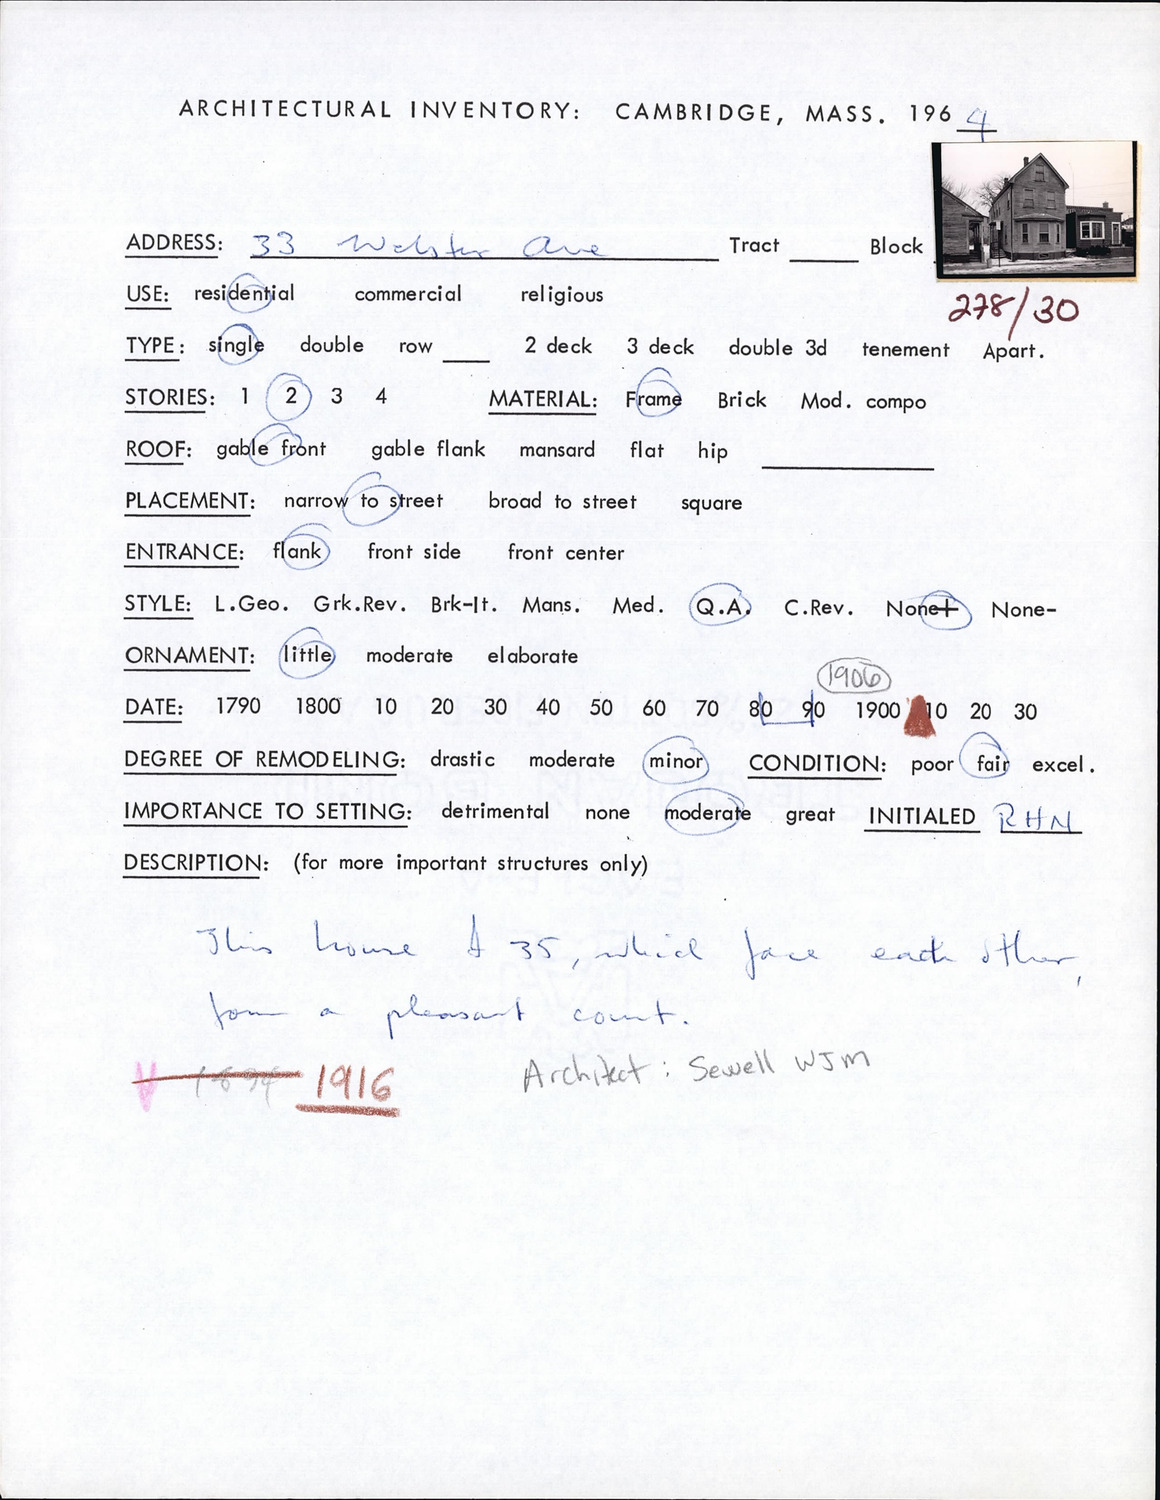 ARCHITECTURAL INVENTORY: CAMBRIDGE, MASS. 1964
ADDRESS: 33 Webster Ave Tract ____ Block
278/30
USE: residential commercial religious
TYPE: single double row ____ 2 deck 3 deck double 3d tenement Apart.
STORIES: 1 2 3 4 MATERIAL: Frame Brick Mod. compo
ROOF: gable front gable flank mansard flat hip ____
PLACEMENT: narrow to street broad to street square
ENTRANCE: flank front side front center
STYLE: L.Geo. Grk.Rev. Brk-It. Mans. Med. Q.A. C.Rev. None+ None-
ORNAMENT: little moderate elaborate
1906
DATE: 1790 1800 10 20 30 40 50 60 70 80 90 1900 10 20 30
DEGREE OF REMODELING: drastic moderate minor CONDITION: poor fair excel.
IMPORTANCE TO SETTING: detrimental none moderate great INITIALED RHN
DESCRIPTION: (for more important structures only)
This house & 35, which face each other,
form a pleasant court.
1894 1916 Architect: Sewell WJM